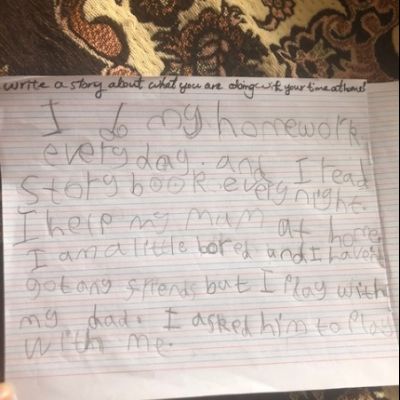 write a story about what you are doing with your time at home!
I do my homework
every day. and I read
Story book every night.
I help my mum at home
I am a little bored and I haven't
got any friends but I Play with
my dad. I asked him to Play
with me.